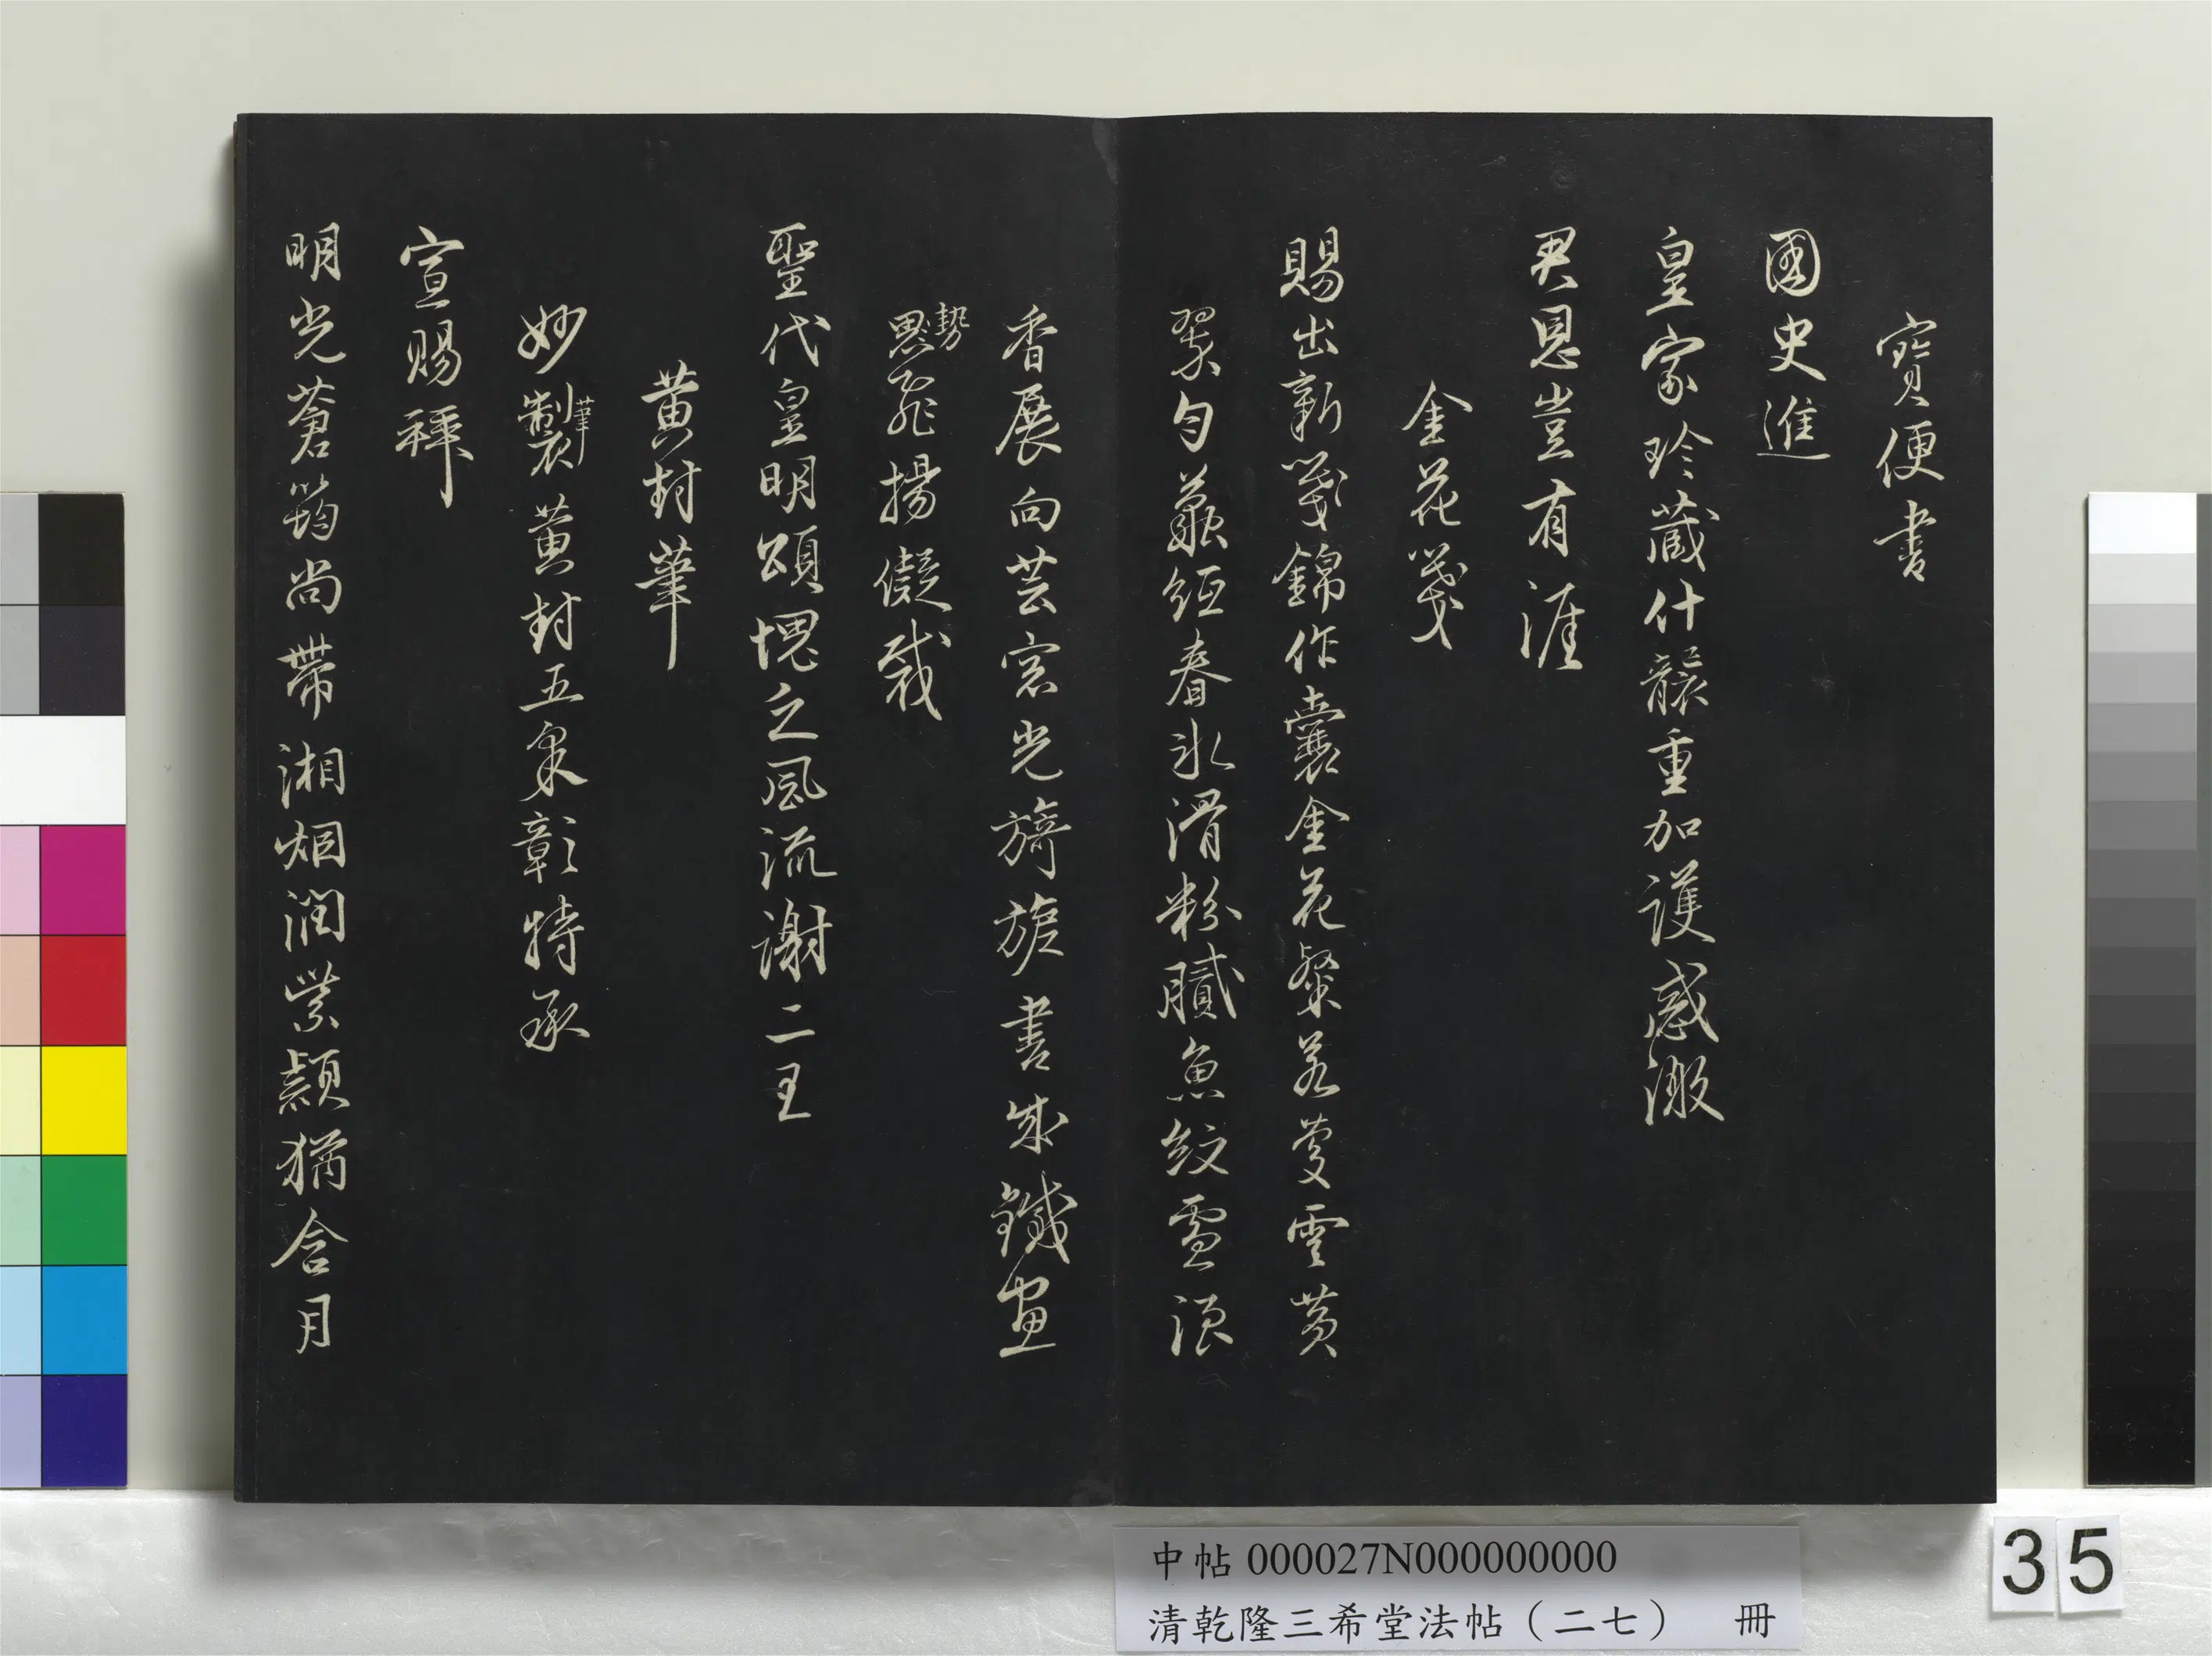 寶便書
國史進
皇家珍藏什襲重加護感激
君恩豈有涯
金花箋
賜出新箋錦作囊金花粲若蔓雲黃
翠勻蘸紙春冰滑粉膩魚紋雪浪
香展向芸窓光旖旎書成鐵畫
勢飛揚儗裁
聖代皇明頌愧乏風流謝二王
黃封筆
妙製筆黃封五采彰特承
宣賜拜
明光蒼筠尚帶湘烟潤紫穎猶含月
中帖 000027N000000000
清乾隆三希堂法帖（二七） 冊
35